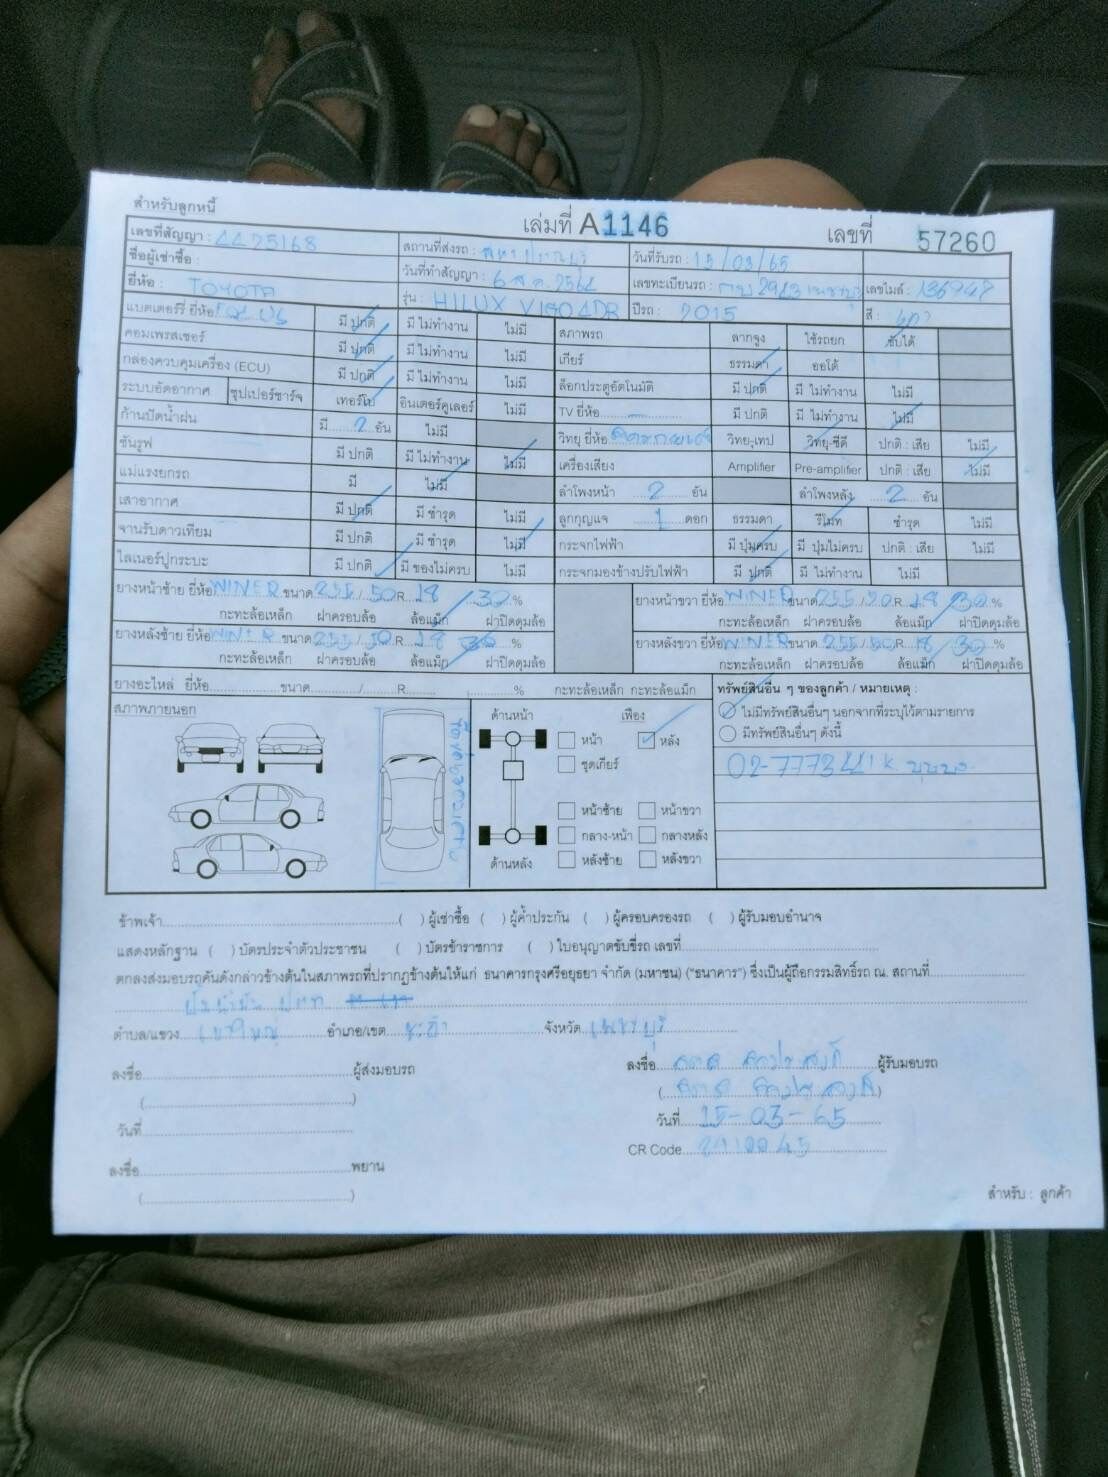 สำหรับลูกหนี้
เล่มที่ A1146 เลขที่ 57260
เลขที่สัญญา : AA25168 สถานที่ส่งรถ : วันที่รับรถ : 15/03/65
ชื่อผู้เช่าซื้อ : วันที่ทำสัญญา : 6 ส.ค. 2564 เลขทะเบียนรถ : 2943 เพชรบุรี เลขไมล์ : 136947
ยี่ห้อ : TOYOTA รุ่น : HILUX VIGO 4DR ปีรถ : 2015 สี :
แบตเตอรรี่ ยี่ห้อ FOCUS มี ปกติ มี ไม่ทำงาน ไม่มี สภาพรถ ลากจูง ใช้รถยก ขับได้
คอมเพรสเซอร์ มี ปกติ มี ไม่ทำงาน ไม่มี เกียร์ ธรรมดา ออโต้
กล่องควบคุมเครื่อง (ECU) มี ปกติ มี ไม่ทำงาน ไม่มี ล็อกประตูอัตโนมัติ มี ปกติ มี ไม่ทำงาน ไม่มี
ระบบอัดอากาศ ซุปเปอร์ชาร์จ เทอร์โบ อินเตอร์คูลเลอร์ ไม่มี TV ยี่ห้อ มี ปกติ มี ไม่ทำงาน ไม่มี
ก้านปัดน้ำฝน มี 2 อัน ไม่มี วิทยุ ยี่ห้อ วิทยุ-เทป วิทยุ-ซีดี ปกติ : เสีย ไม่มี
ซันรูฟ มี ปกติ มี ไม่ทำงาน ไม่มี เครื่องเสียง Amplifier Pre-amplifier ปกติ : เสีย ไม่มี
แม่แรงยกรถ มี ไม่มี ลำโพงหน้า 2 อัน ลำโพงหลัง 2 อัน
เสาอากาศ มี ปกติ มี ชำรุด ไม่มี ลูกกุญแจ 1 ดอก ธรรมดา รีโมท ชำรุด ไม่มี
จานรับดาวเทียม มี ปกติ มี ชำรุด ไม่มี กระจกไฟฟ้า มี ปุ่มครบ มี ปุ่มไม่ครบ ปกติ : เสีย ไม่มี
ไลเนอร์ปูกระบะ มี ปกติ มี ของไม่ครบ ไม่มี กระจกมองข้างปรับไฟฟ้า มี ปกติ มี ไม่ทำงาน ไม่มี
ยางหน้าซ้าย ยี่ห้อ WINER ขนาด 255 / 50 R 18 30 % ยางหน้าขวา ยี่ห้อ WINER ขนาด 255 / 50 R 18 30 %
กะทะล้อเหล็ก ฝาครอบล้อ ล้อแม็ก ฝาปิดดุมล้อ กะทะล้อเหล็ก ฝาครอบล้อ ล้อแม็ก ฝาปิดดุมล้อ
ยางหลังซ้าย ยี่ห้อ WINER ขนาด 255 / 50 R 18 30 % ยางหลังขวา ยี่ห้อ WINER ขนาด 255 / 50 R 18 30 %
กะทะล้อเหล็ก ฝาครอบล้อ ล้อแม็ก ฝาปิดดุมล้อ กะทะล้อเหล็ก ฝาครอบล้อ ล้อแม็ก ฝาปิดดุมล้อ
ยางอะไหล่ ยี่ห้อ ขนาด / R % กะทะล้อเหล็ก กะทะล้อแม็ก ทรัพย์สินอื่น ๆ ของลูกค้า / หมายเหตุ :
สภาพภายนอก ด้านหน้า เฟือง ไม่มีทรัพย์สินอื่นๆ นอกจากที่ระบุไว้ตามรายการ
หน้า หลัง มีทรัพย์สินอื่นๆ ดังนี้
ชุดเกียร์ 02-7773441 K.
หน้าซ้าย หน้าขวา
กลาง-หน้า กลางหลัง
ด้านหลัง หลังซ้าย หลังขวา
ข้าพเจ้า ( ) ผู้เช่าซื้อ ( ) ผู้ค้ำประกัน ( ) ผู้ครอบครองรถ ( ) ผู้รับมอบอำนาจ
แสดงหลักฐาน ( ) บัตรประจำตัวประชาชน ( ) บัตรข้าราชการ ( ) ใบอนุญาตขับขี่รถ เลขที่
ตกลงส่งมอบรถคันดังกล่าวข้างต้นในสภาพรถที่ปรากฏข้างต้นให้แก่ ธนาคารกรุงศรีอยุธยา จำกัด (มหาชน) ("ธนาคาร") ซึ่งเป็นผู้ถือกรรมสิทธิ์รถ ณ. สถานที่
ปั๊มน้ำมัน ปตท
ตำบล/แขวง เขาใหญ่ อำเภอ/เขต ชะอำ จังหวัด เพชรบุรี
ลงชื่อ ผู้ส่งมอบรถ ลงชื่อ ผู้รับมอบรถ
( ) ( )
วันที่ วันที่ 15-03-65
CR Code
ลงชื่อ พยาน
( )
สำหรับ : ลูกค้า